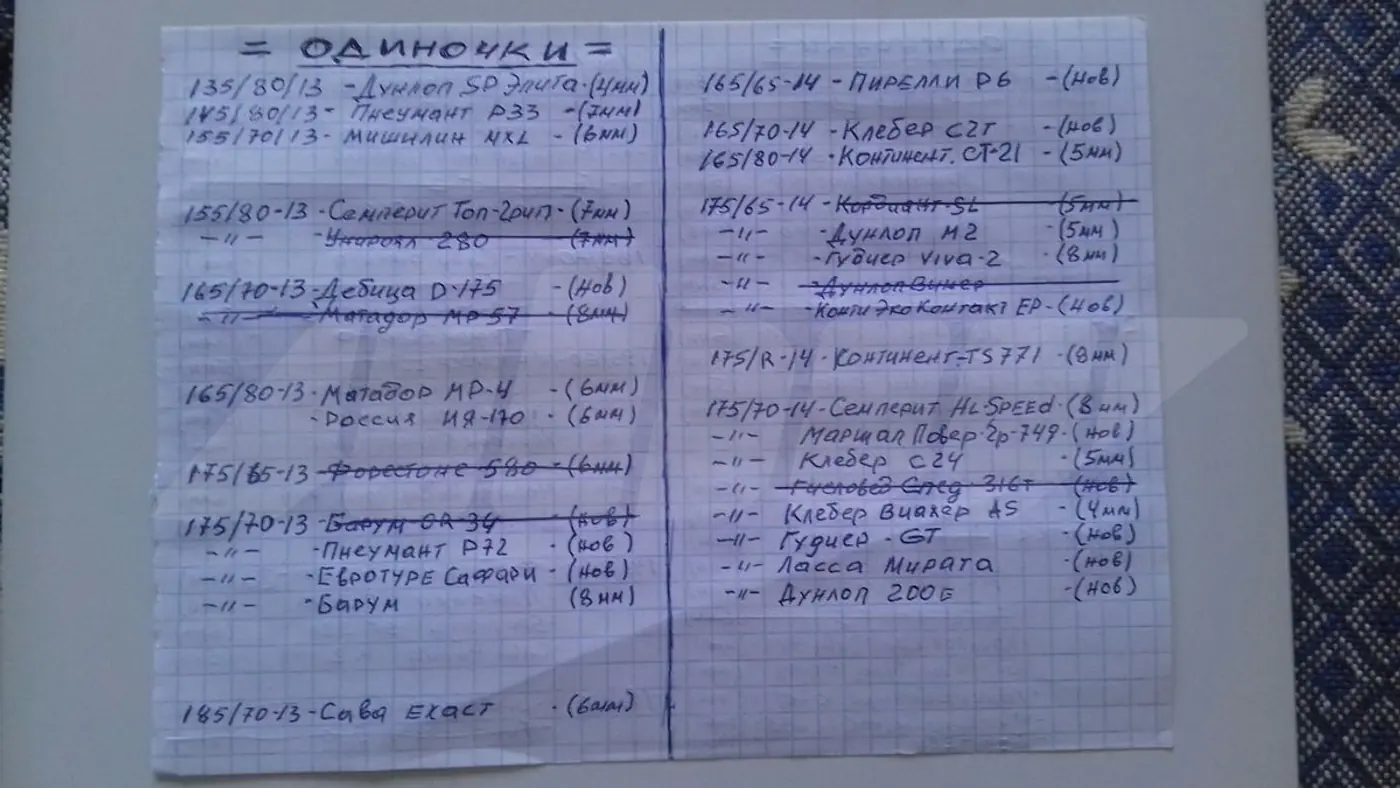 = ОДИНОЧКИ =
135/80/13 - Дунлоп SP Элита - (4мм)
145/80/13 - Пнеумант P33 - (7мм)
155/70/13 - Мишилин MXL - (6мм)
155/80-13 - Семперит Топ-Грип - (7мм)
-"- - Унироял 280 (7мм)
165/70-13 - Дебица D-175 - (Нов)
-"- - Матадор MP-57 - (8мм)
165/80-13 - Матадор MP-4 - (6мм)
- Россия ИЯ-170 - (6мм)
175/65-13 - Форестоне 580 - (6мм)
175/70-13 - Барум OR-34 - (нов)
-"- - Пнеумант P72 - (нов)
-"- - Евротуре Сафари - (нов)
-"- - Барум (8мм)
185/70-13 - Сава Exact - (6мм)
165/65-14 - Пирелли P6 - (нов)
165/70-14 - Клебер C2T - (нов)
165/80-14 - Континент. CT-21 - (5мм)
175/65-14 - Кордиант-SL (5мм)
-"- - Дунлоп M2 - (5мм)
-"- - Гудиер Viva-2 - (8мм)
-"- - Дунлоп Винер
-"- - Конти Эко Контакт EP - (нов)
175/R-14 - Континент. TS771 - (8мм)
175/70-14 - Семперит Hi-Speed - (8мм)
-"- Маршал Повер-Гр-749 - (нов)
-"- Клебер C24 - (5мм)
-"- Гисловед Спед 316T (нов)
-"- Клебер Виахер AS - (4мм)
-"- Гудиер - GT - (нов)
-"- Ласса Мирата - (нов)
-"- Дунлоп 200E - (нов)